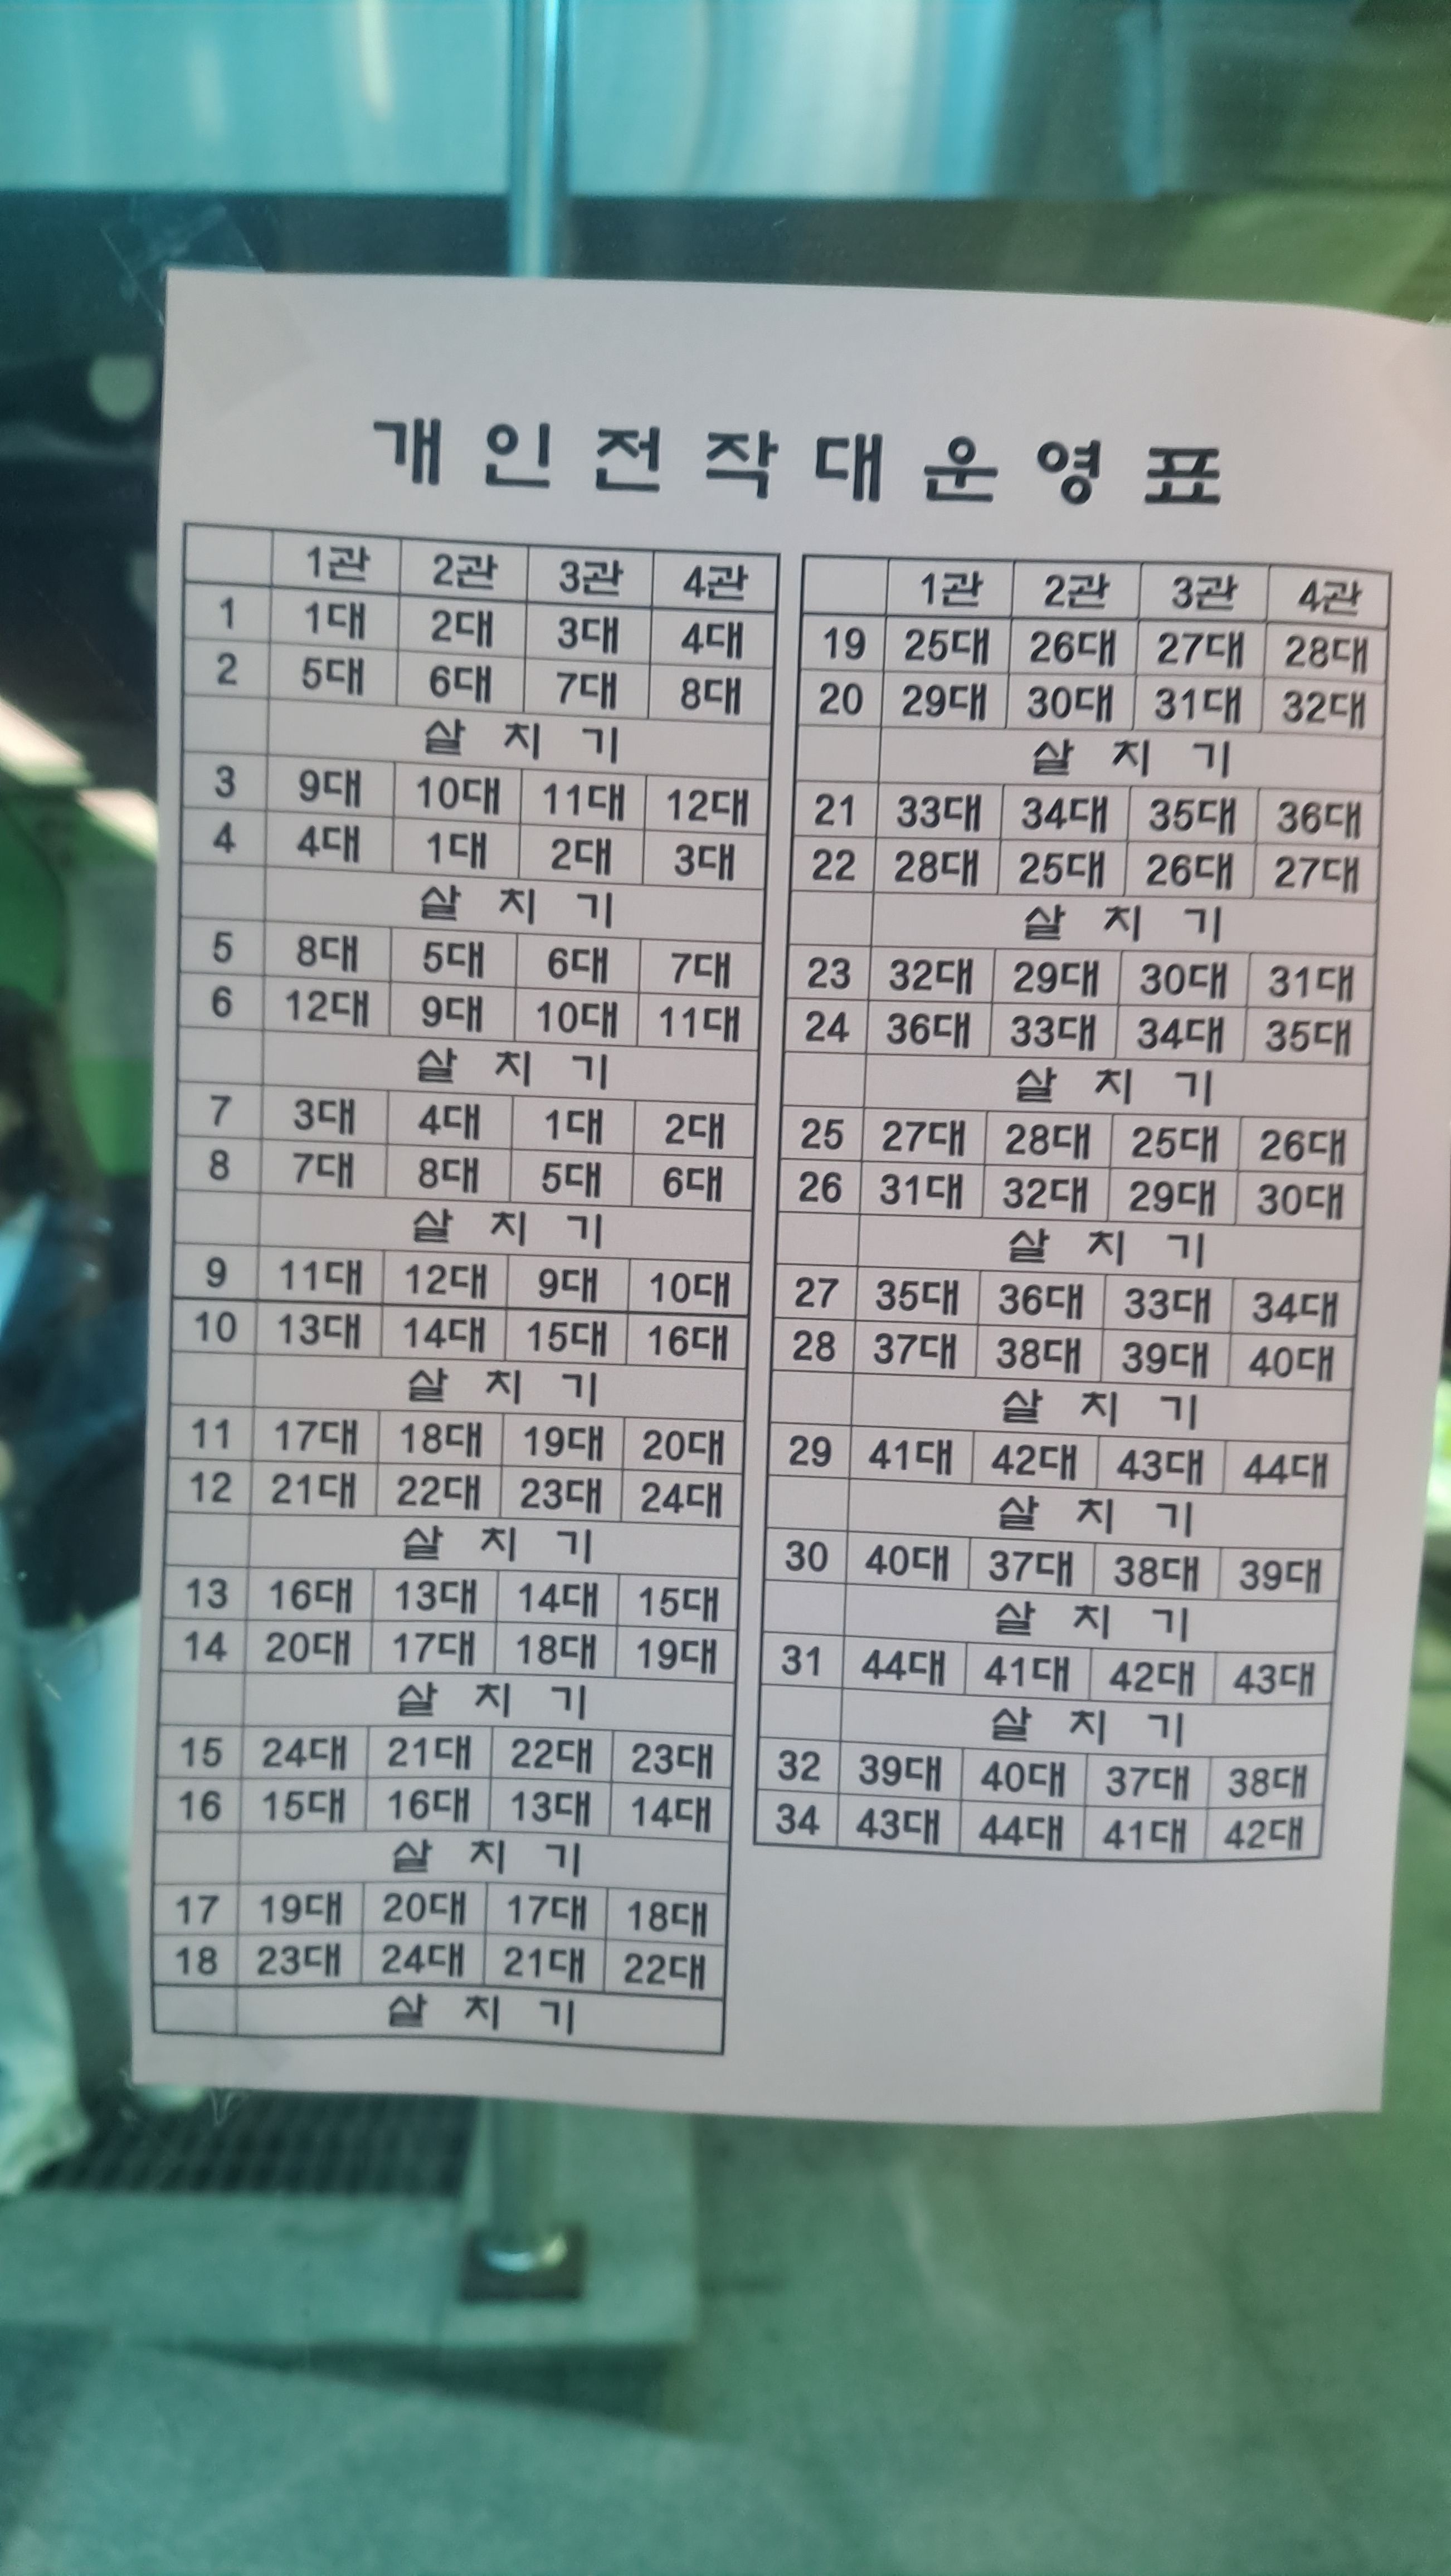 개인전작대운영표
1관 2관 3관 4관
1 1대 2대 3대 4대
2 5대 6대 7대 8대
살 치 기
3 9대 10대 11대 12대
4 4대 1대 2대 3대
살 치 기
5 8대 5대 6대 7대
6 12대 9대 10대 11대
살 치 기
7 3대 4대 1대 2대
8 7대 8대 5대 6대
살 치 기
9 11대 12대 9대 10대
10 13대 14대 15대 16대
살 치 기
11 17대 18대 19대 20대
12 21대 22대 23대 24대
살 치 기
13 16대 13대 14대 15대
14 20대 17대 18대 19대
살 치 기
15 24대 21대 22대 23대
16 15대 16대 13대 14대
살 치 기
17 19대 20대 17대 18대
18 23대 24대 21대 22대
살 치 기
1관 2관 3관 4관
19 25대 26대 27대 28대
20 29대 30대 31대 32대
살 치 기
21 33대 34대 35대 36대
22 28대 25대 26대 27대
살 치 기
23 32대 29대 30대 31대
24 36대 33대 34대 35대
살 치 기
25 27대 28대 25대 26대
26 31대 32대 29대 30대
살 치 기
27 35대 36대 33대 34대
28 37대 38대 39대 40대
살 치 기
29 41대 42대 43대 44대
살 치 기
30 40대 37대 38대 39대
살 치 기
31 44대 41대 42대 43대
살 치 기
32 39대 40대 37대 38대
34 43대 44대 41대 42대